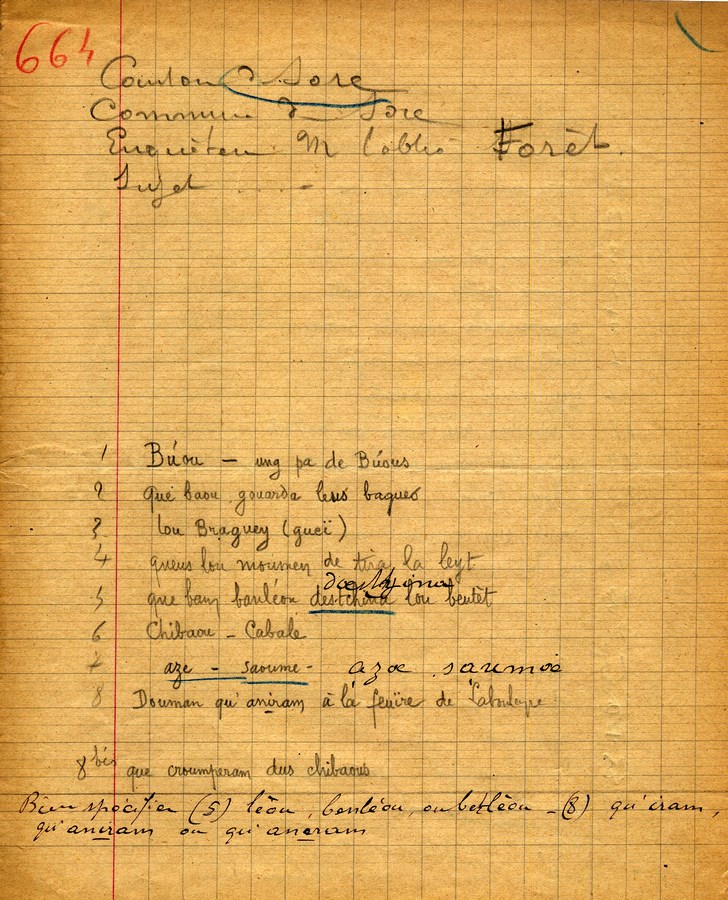 664
Canton Sore
Commune de Sore
Enquêteur M Forêt.
Sujet ... -
1 Búou – ung pa de Búous
2 què baou gouarda leus baques
3 lou Braguey (gueï)
4 queus lou moumen de tira la leyt
5 que bam banléou destchina lou bentèt
6 Chibaou – Cabale
7 aze - saoume - azœ saumœ
8 Douman qu'aniram à la feuïre de
8 bis que croumperam dus chibaous
Bien spécifier (5) lèou, benlèou, ou betlèou - (8) qu'iram,
qu'aniram ou qu'aneram